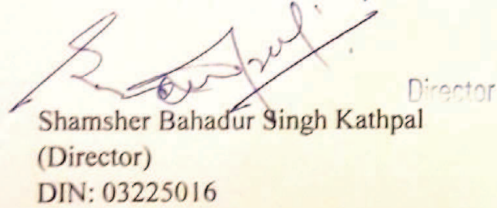 Director
Shamsher Bahadur Singh Kathpal
(Director)
DIN: 03225016